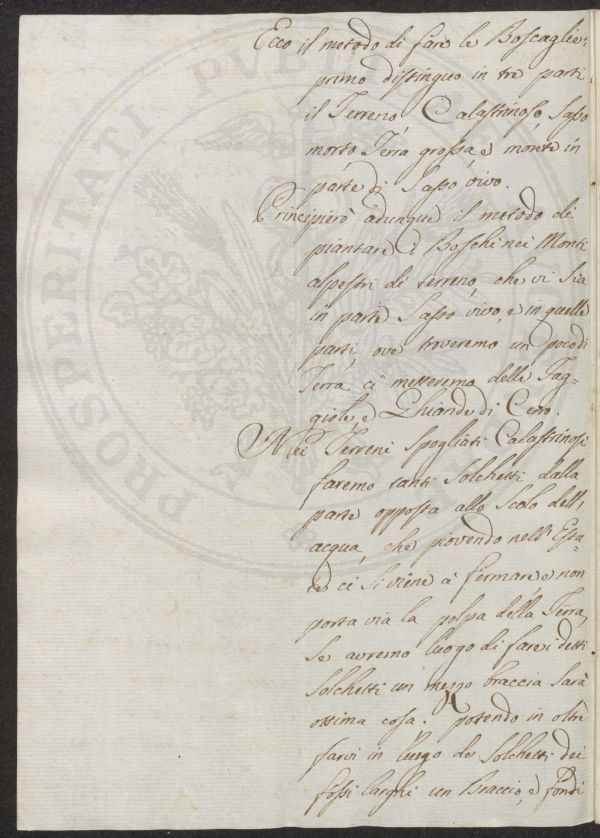 Ecco il metodo di fare le Boscaglie:
primo distinguo in tre parti
il Terreno, Calastrinoso, Sasso
morto, Terra grossa, e monte in
parte di Sasso vivo.
Principierò adunque il metodo di
piantare i Boschi nei Monti
alpestri di terreno, che vi sia
in parte Sasso vivo, e in quelle
parti, ove troveremo un poco di
Terra, ci metteremo delle Fag-
giole, e Ghiande di Cerro.
Nei Terreni spogliati Calastrinosi
faremo tanti Solchetti dalla
parte opposta allo Scolo dell'
acqua, che piovendo nell'Esta-
te ci si viene à fermare e non
porta via la polpa della Terra,
se avremo luogo di farvi detti
Solchetti un mezzo braccia sarà
ottima cosa. Potendo in oltre
farvi in luogo de Solchetti dei
fossi larghi un Braccio, e fondi
PROSPERITATI PVBL